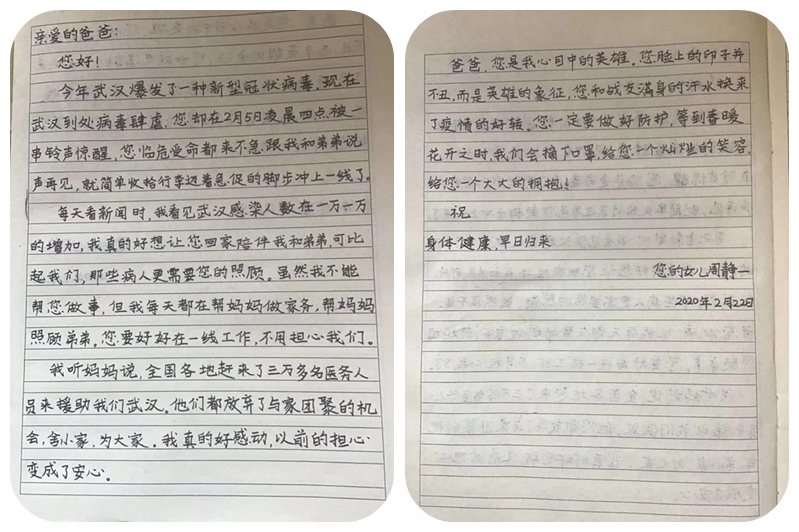 亲爱的爸爸：
您好！
今年武汉爆发了一种新型冠状病毒，现在
武汉到处病毒肆虐，您却在2月5日凌晨四点被一
串铃声惊醒，您临危受命都来不急跟我和弟弟说
声再见，就简单收拾行李迈着急促的脚步冲上一线了。
每天看新闻时，我看见武汉感染人数在一万一万
的增加，我真的好想让您回家陪伴我和弟弟，可比
起我们，那些病人更需要您的照顾。虽然我不能
帮您做事，但我每天都在帮妈妈做家务，帮妈妈
照顾弟弟。您要好好在一线工作，不用担心我们。
我听妈妈说，全国各地赶来了三万多名医务人
员来援助我们武汉。他们都放弃了与家团聚的机
会，舍小家，为大家。我真的好感动，以前的担心
变成了安心。
爸爸，您是我心目中的英雄。您脸上的印子并
不丑，而是英雄的象征，您和战友满身的汗水换来
了疫情的好转。您一定要做好防护，等到春暖
花开之时，我们会摘下口罩，给您一个灿烂的笑容，
给您一个大大的拥抱！
祝
身体健康，早日归来
您的女儿周静一
2020年2月22日